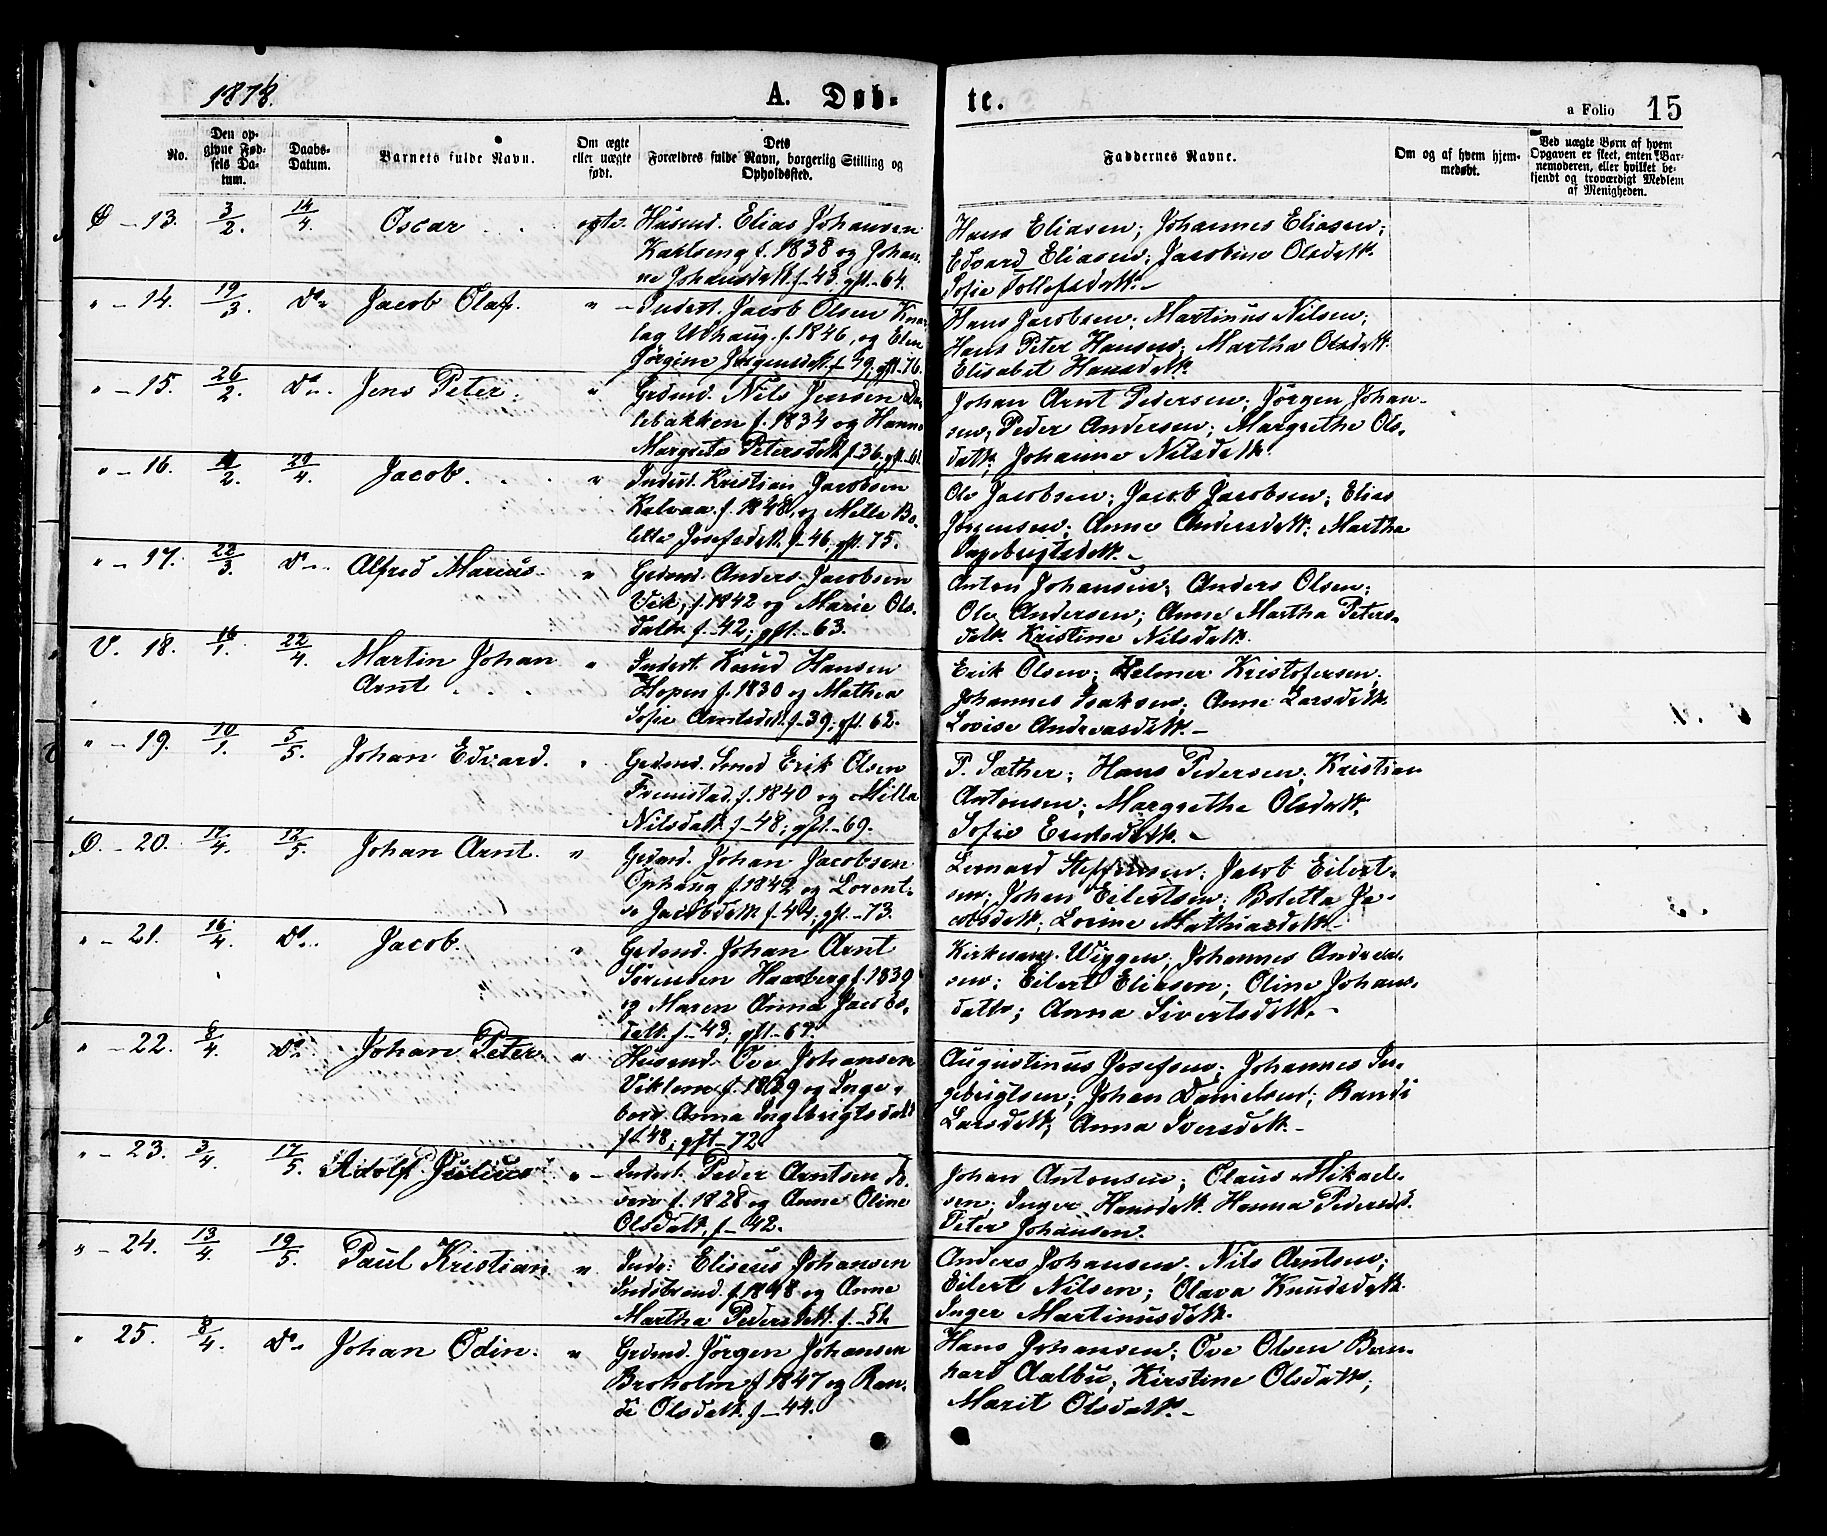 1878.
A. Døb-
te.
a Folio 15
No.
Den op-
givne Fød-
sels Da-
tum.
Daabs-
Datum.
Barnets fulde Navn.
Om ægte
eller uægte
født.
Dets
Forældres fulde Navn, borgerlig Stilling og
Opholdssted.
Faddernes Navne.
Om og af hvem hjem-
medøbt.
Ved uægte Børn af hvem
Opgaven er skeet, enten Bar-
nemoderen, eller hvilket be-
kjendt og troværdigt Medlem
af Menigheden.
13. 3/2. 14/4. Oscar ægte. Husmd. Elias Johansen
Karlseng f. 1838 og Johan-
ne Johansdatt. f. 43. gft. 64.
Hans Eliasen; Johannes Eliasen;
Edvard Eliasen; Jacobine Olsdatt.
Sofie Tollefsdatt.
" - 14. 19/3. Do. Jacob Olaf. " Inderst. Jacob Olsen
Udhaug. f. 1846, og Elen
Jørgine Jørgensdatt. f. 39; gft. 76.
Hans Jacobsen; Martinus Nilsen;
Hans Peter Hansen; Martha Olsdatt.
Elisabet Hansdatt.
" - 15. 26/2. Do. Jens Peter. " Grdmd. Nils Jensen
bakken f. 1834 og Hanna
Margrete Petersdatt. f. 36. gft. 61.
Johan Arnt Pedersen; Jörgen Johan-
sen; Peder Andersen; Margrethe Ols-
datt; Johanne Nilsdatt.
" - 16. /2. 29/4. Jacob. " Inderst. Kristian Jacobsen
Kalvaa. f. 1848. og Mette Bo-
lette Josefsdatt. f. 46. gft. 75.
Ole Jacobsen; Jacob Jacobsen; Elias
Jørgensen; Anne Andersdatt; Martha
Ingebrigtsdatt.
" - 17. 22/3. Do. Alfred Marius. " Grdmd. Anders Jacobsen
Vik, f. 1842 og Marie Ols-
datter f. 42; gft. 63.
Anton Johansen; Anders Olsen;
Ole Andersen; Anne Martha Peters-
datt. Kristine Nilsdatt.
V. 18. 16/1. 22/4. Martin Johan
Arnt " Inderst. Knud Hansen
Hopen f. 1830 og Mathea
Sofie Arntsdatt. f. 39; gft. 62.
Erik Olsen; Helmer Kristofersen;
Johannes Isaksen; Anne Larsdatt.
Lovise Andreasdatt.
" - 19. 10/1. 5/5. Johan Edvard. " Grdmd. Smed Erik Olsen
Fremstad. f. 1840 og Milla
Nilsdatt f. 48; gft. 69.
P. Sæther; Hans Pedersen; Kristian
Antonsen; Margrethe Olsdatt.
Sofie Eriksdatt.
Ø. - 20. 17/4. 12/5. Johan Arnt. " Grdmd. Johan Jacobsen
Ophaug f. 1842 og Lorent-
se Jacobsdatt f. 44; gft. 73.
Leonard Steffensen; Jacob Eilert-
sen; Johan Eilertsen; Boletta Ja-
cobsdatt; Lorine Mathiasdatt.
" - 21. 16/4. Do. Jacob. " Grdmd. Johan Arnt
Sörensen Haaberg f. 1839
og Maren Anna Jacobs-
datt. f. 43; gft. 67.
Kirkesang. Wiggen; Johannes Andrea-
sen; Eilert Eliasen; Oline Johans-
datt; Anna Sivertsdatt.
" - 22. 8/4. Do. Johan Peter. " Husmd. Ove Johansen
Viklem f. 1839 og Inge-
borg Anna Ingebrigtsdatt
f. 48; gft. 72.
Augustinus Josefsen; Johannes In-
gebrigtsen; Johan Danielsen; Randi
Larsdatt; Anna Iversdatt.
" - 23. 3/4. 17/5. Adolf Julius " Inderst. Peder Arntsen
f. 1828 og Anne Oline
Olsdatt. f. 42.
Johan Antonsen; Claus Mikael-
sen; Inger Hansdatt. Hanna Pedersd.
Peter Johansen.
" - 24. 13/4. 19/5. Paul Kristian " Inds. Eliseus Johansen
Indstrand. f. 1848 og Anne
Martha Pedersdatt. f. 51.
Anders Johansen; Nils Arntsen;
Eilert Nilsen; Olava Knudsdatt.
Inger Martinusdatt.
" 25. 8/4. Do. Johan Odin. " Grdmd. Jörgen Johansen
Broholm f. 1847 og Ran-
di Olsdatt. f. 44.
Hans Johansen; Ove Olsen Bern-
hard Aalbu; Kirstine Olsdatt;
Marit Olsdatt.